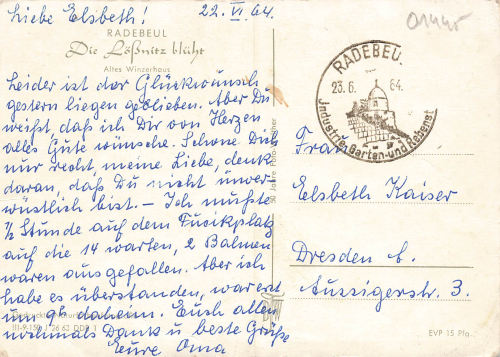 Liebe Elsbeth! 22. VI. 64.
RADEBEUL
Die Lößnitz blüht
Altes Winzerhaus
Leider ist der Glückwunsch
gestern liegen geblieben. Aber Du
weißt, daß ich Dir von Herzen
alles Gute wünsche. Schone Dich
nur recht, meine Liebe, denk
daran, daß Du nicht unver-
wüstlich bist. – Ich mußte
½ Stunde auf dem Fucikplatz
auf die 14 warten, 2 Bahnen
waren ausgefallen. Aber ich
habe es überstanden, war erst
um 96 daheim. Euch allen
nochmals Dank u beste Grüße
Eure Oma
III-9-150 J 26 63 DDR 1
50 Jahre
RADEBEUL
23.6. 64.
Industrie-, Garten- und Rebenst
Frau
Elsbeth Kaiser
Dresden A.
Aussigerstr. 3.
EVP 15 Pfg.